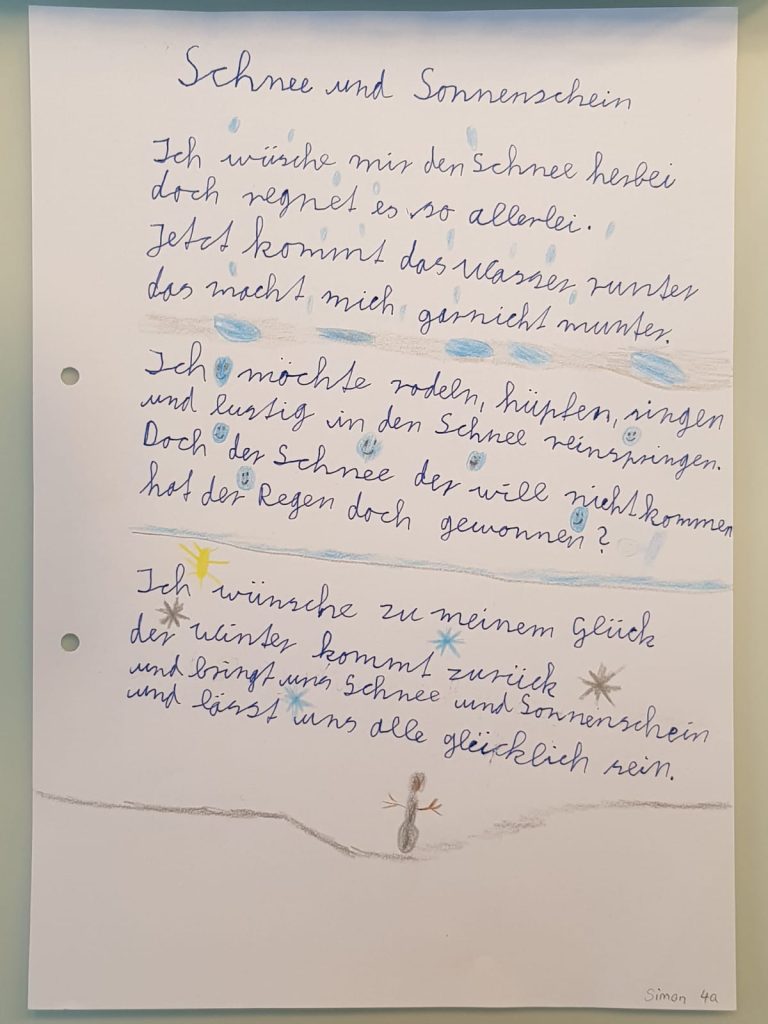 Schnee und Sonnenschein
Ich wüsche mir den Schnee herbei
doch regnet es so allerlei.
Jetzt kommt das Wasser runter
das macht mich garnicht munter.
Ich möchte rodeln, hüpfen, singen
und lustig in den Schnee reinspringen.
Doch der Schnee der will nicht kommen
hat der Regen doch gewonnen?
Ich wünsche zu meinem Glück
der Winter kommt zurück
und bringt uns Schnee und Sonnenschein
und lässt uns alle glücklich sein.
Simon 4a